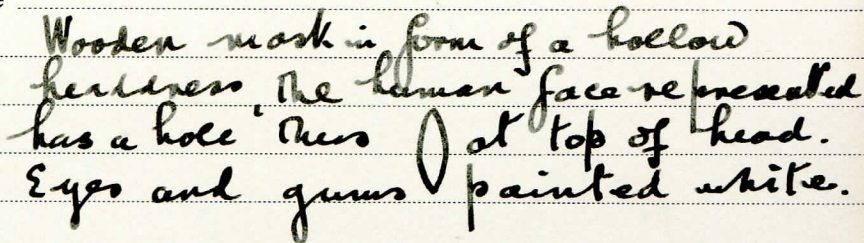 Wooden mask in form of a hollow
headdress, The human face represented
has a hole thus at top of head.
Eyes and gums painted white.